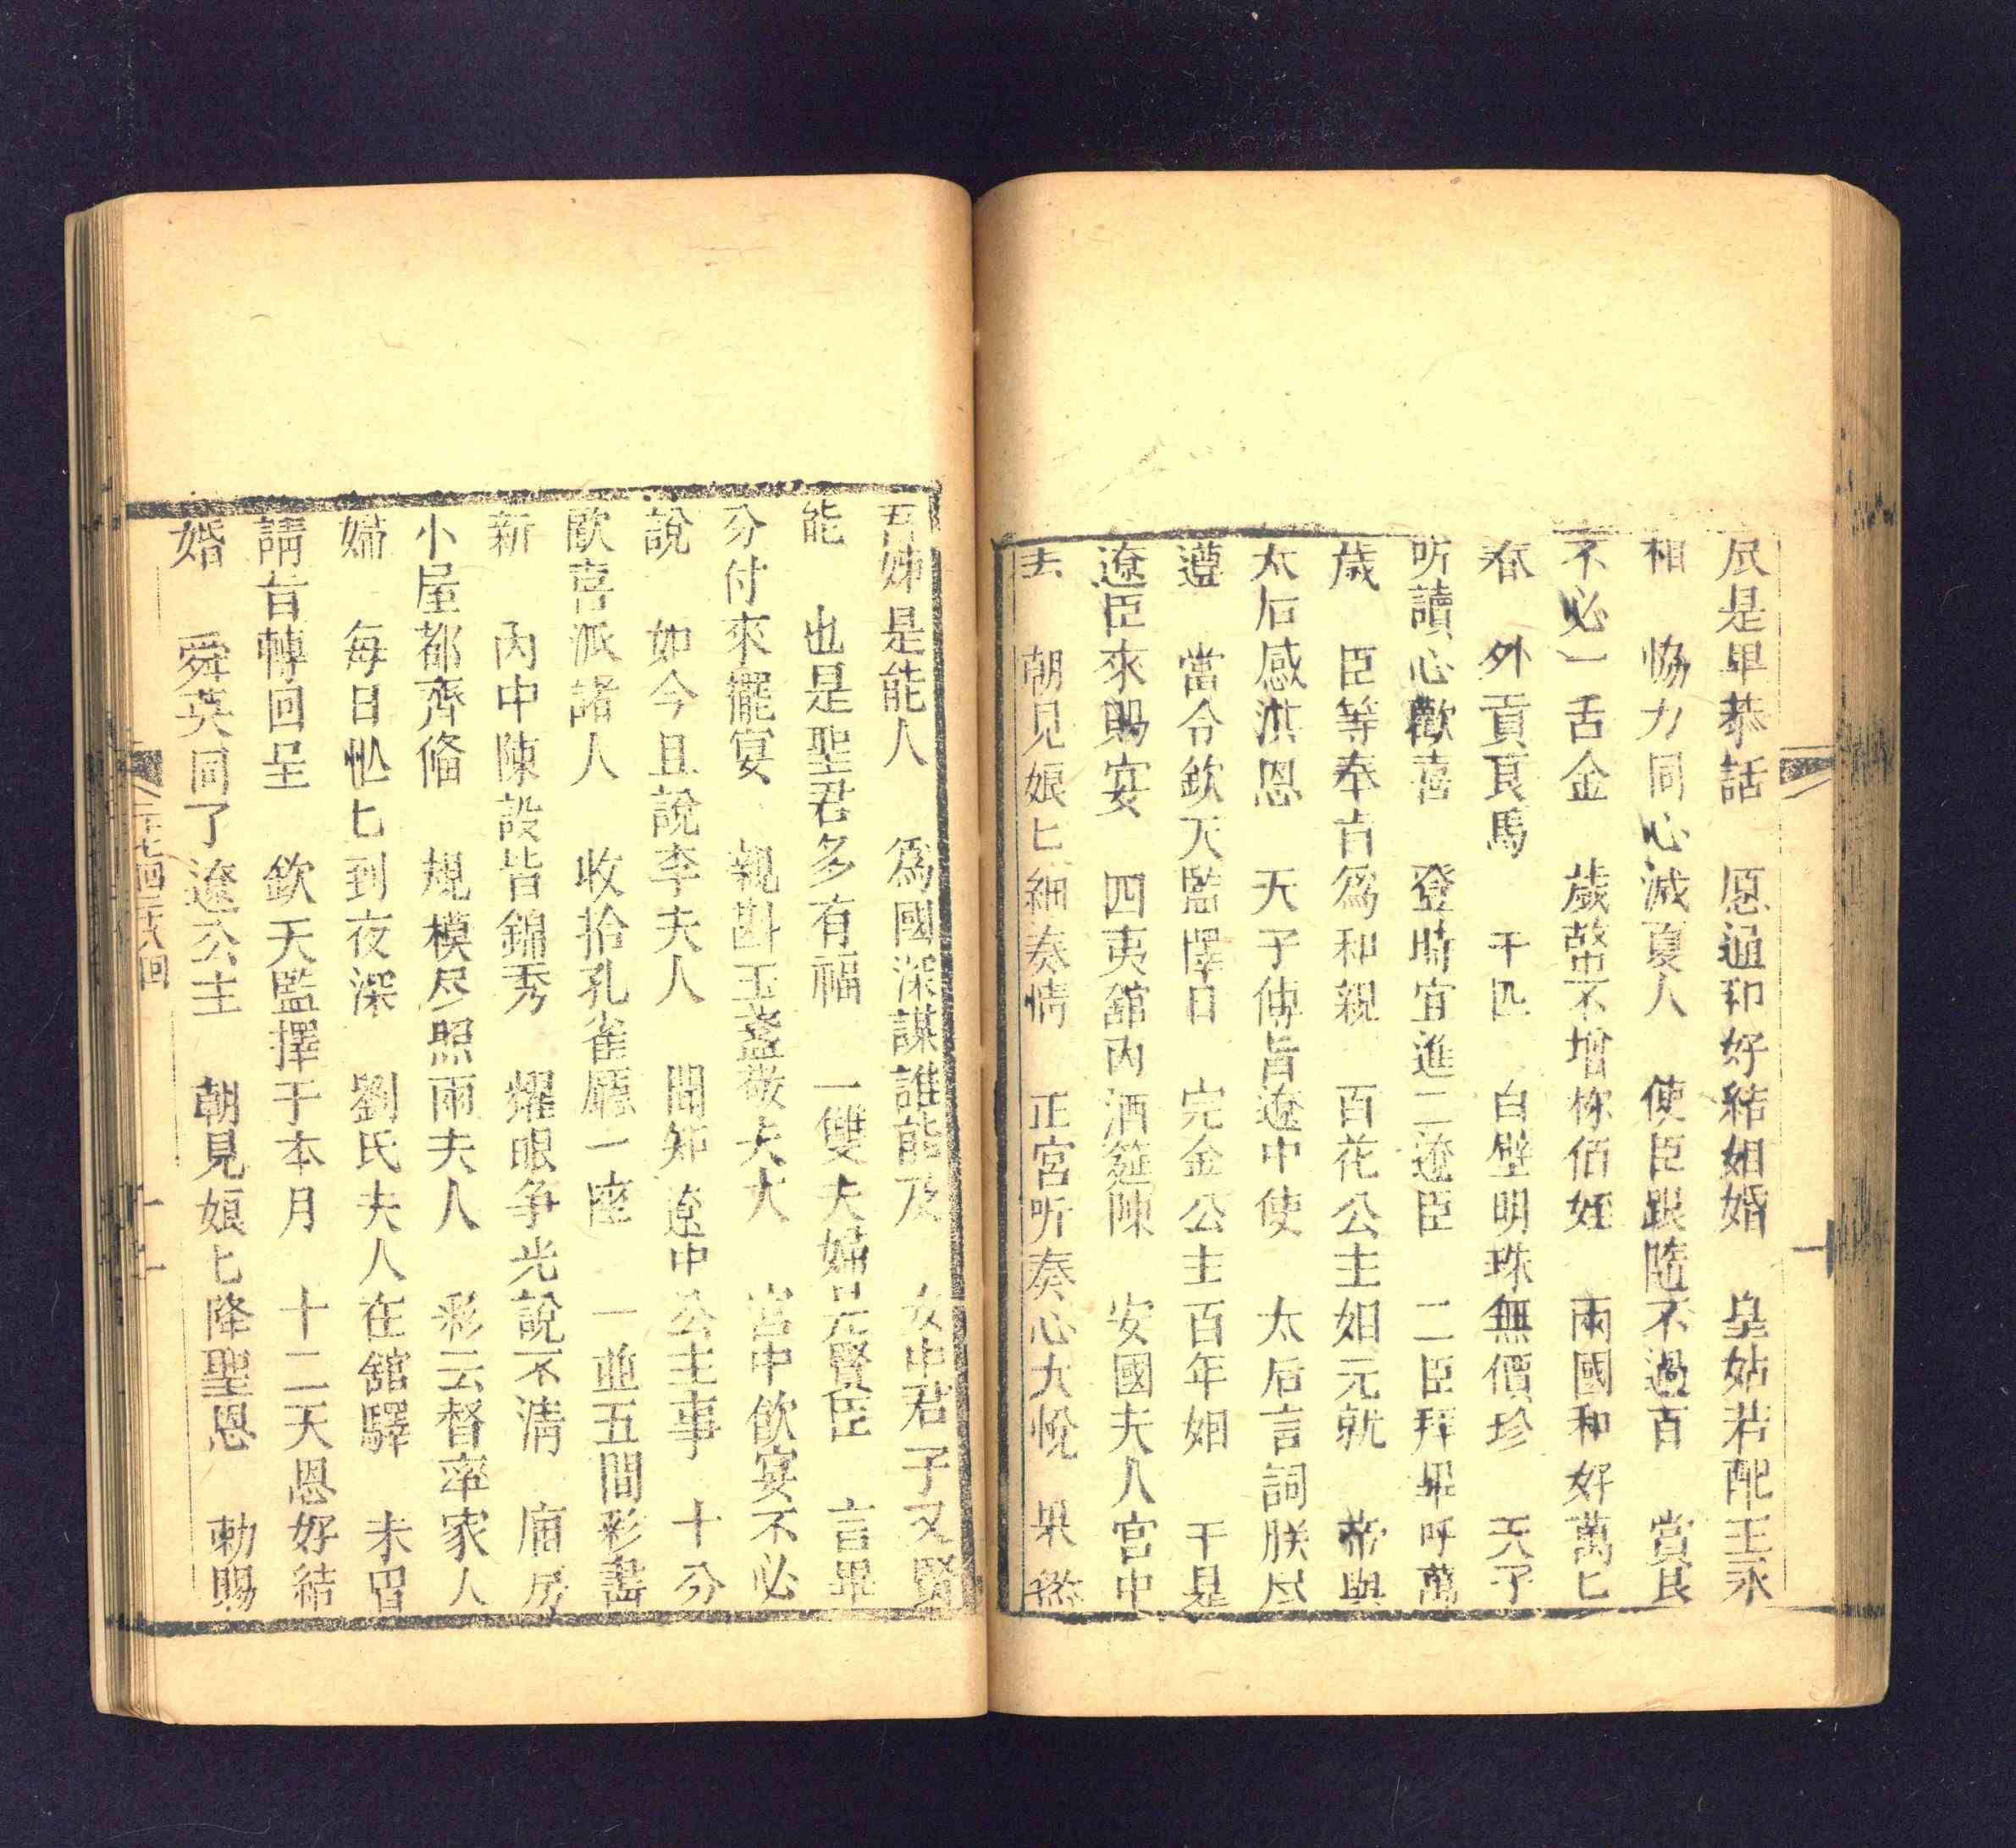 尽是卑恭話　愿通和好結姻婚　皇姑若配王永
相　恊力同心滅夏人　使臣跟隨不過百　賞良
不必一舌金　歲幣不增称伯姪　兩國和好萬匕
春　外貢良馬　千匹　白璧明珠無價珍　天子
听讀心歡喜　登時宣進二遼臣　二臣拜畢呼萬
歲　臣等奉旨爲和親　百花公主如元就　帝與
太后感洪恩　天子傳旨遼中使　太后言詞朕尽
遵　當令欽天監擇日　完金公主百年姻　于是
遼臣來賜宴　四夷舘内洒筵陳　安國夫人宮中
去　朝見娘匕細奏情　正宮听奏心大悅　果然
吾姊是能人　爲國深謀誰能及　女中君子又賢
能　也是聖君多有福　一雙夫婦是賢臣　言畢
分付來擺宴　親斟玉盞敬夫大　宮中飲宴不必
說　如今且說李夫人　聞知遼中公主事　十分
歡喜派諸人　收拾孔雀廳一座　一並五間彩畵
新　内中陳設皆錦秀　耀眼争光說不清　廂房
小屋都齊偹　規模尽照兩夫人　彩云督率家人
婦　每日忙匕到夜深　劉氏夫人在舘驛　未畱
請旨轉回呈　欽天監擇于本月　十二天恩好結
婚　舜英同了遼公主　朝見娘匕降聖恩　勅賜
二十七回二十八回